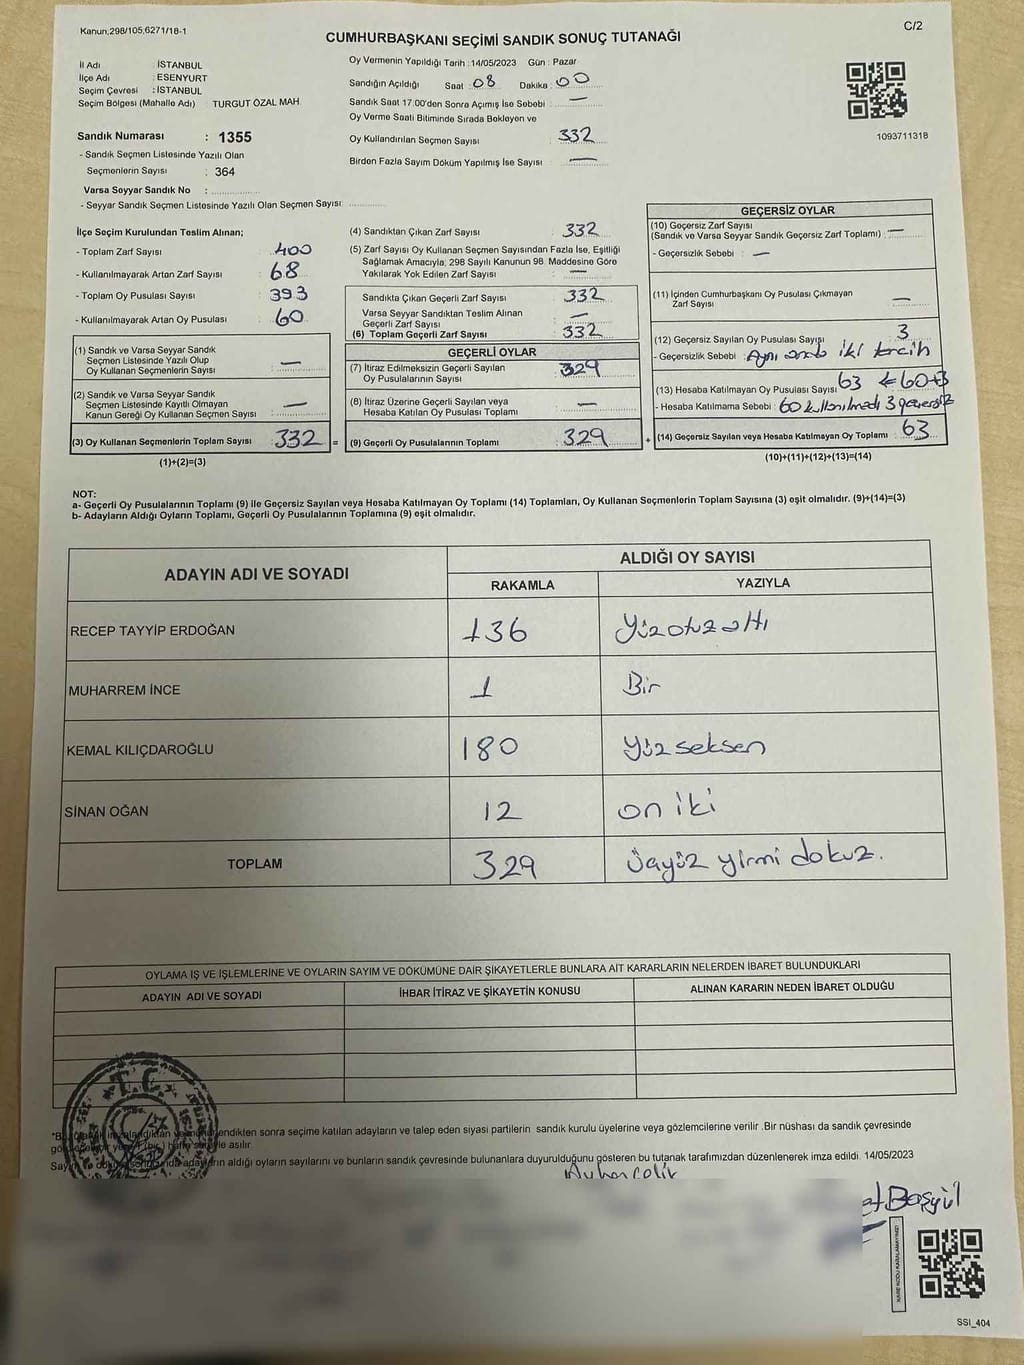 Kanun,298/105,6271/18-1
C/2
CUMHURBAŞKANI SEÇİMİ SANDIK SONUÇ TUTANAĞI
İl Adı : İSTANBUL
İlçe Adı : ESENYURT
Seçim Çevresi : İSTANBUL
Seçim Bölgesi (Mahalle Adı) TURGUT ÖZAL MAH.
Sandık Numarası : 1355
- Sandık Seçmen Listesinde Yazılı Olan
Seçmenlerin Sayısı : 364
Varsa Seyyar Sandık No :
- Seyyar Sandık Seçmen Listesinde Yazılı Olan Seçmen Sayısı:
Oy Vermenin Yapıldığı Tarih : 14/05/2023 Gün : Pazar
Sandığın Açıldığı Saat : 08 Dakika : 00
Sandık Saat 17:00'den Sonra Açımış İse Sebebi : —
Oy Verme Saati Bitiminde Sırada Bekleyen ve
Oy Kullandırılan Seçmen Sayısı : 332
Birden Fazla Sayım Döküm Yapılmış İse Sayısı : —
1093711318
İlçe Seçim Kurulundan Teslim Alınan;
- Toplam Zarf Sayısı : 400
- Kullanılmayarak Artan Zarf Sayısı : 68
- Toplam Oy Pusulası Sayısı : 393
- Kullanılmayarak Artan Oy Pusulası : 60
(1) Sandık ve Varsa Seyyar Sandık
Seçmen Listesinde Yazılı Olup
Oy Kullanan Seçmenlerin Sayısı : —
(2) Sandık ve Varsa Seyyar Sandık
Seçmen Listesinde Kayıtlı Olmayan
Kanun Gereği Oy Kullanan Seçmen Sayısı : —
(3) Oy Kullanan Seçmenlerin Toplam Sayısı : 332 =
(1)+(2)=(3)
(4) Sandıktan Çıkan Zarf Sayısı : 332
(5) Zarf Sayısı Oy Kullanan Seçmen Sayısından Fazla İse, Eşitliği
Sağlamak Amacıyla; 298 Sayılı Kanunun 98. Maddesine Göre
Yakılarak Yok Edilen Zarf Sayısı : —
Sandıkta Çıkan Geçerli Zarf Sayısı : 332
Varsa Seyyar Sandıktan Teslim Alınan
Geçerli Zarf Sayısı : —
(6) Toplam Geçerli Zarf Sayısı : 332
GEÇERLİ OYLAR
(7) İtiraz Edilmeksizin Geçerli Sayılan
Oy Pusulalarının Sayısı : 329
(8) İtiraz Üzerine Geçerli Sayılan veya
Hesaba Katılan Oy Pusulası Toplamı : —
(9) Geçerli Oy Pusulalarının Toplamı : 329 +
GEÇERSİZ OYLAR
(10) Geçersiz Zarf Sayısı
(Sandık ve Varsa Seyyar Sandık Geçersiz Zarf Toplamı) : —
- Geçersizlik Sebebi : —
(11) İçinden Cumhurbaşkanı Oy Pusulası Çıkmayan
Zarf Sayısı : —
(12) Geçersiz Sayılan Oy Pusulaşı Sayışı : 3
- Geçersizlik Sebebi : Aynı anda iki tercih
(13) Hesaba Katılmayan Oy Pusulası Sayısı : 63 ← 60+3
- Hesaba Katılmama Sebebi : 60 kullanılmadı 3 geçersiz
(14) Geçersiz Sayılan veya Hesaba Katılmayan Oy Toplamı : 63
(10)+(11)+(12)+(13)=(14)
NOT:
a- Geçerli Oy Pusulalarının Toplamı (9) ile Geçersiz Sayılan veya Hesaba Katılmayan Oy Toplamı (14) Toplamları, Oy Kullanan Seçmenlerin Toplam Sayısına (3) eşit olmalıdır. (9)+(14)=(3)
b- Adayların Aldığı Oyların Toplamı, Geçerli Oy Pusulalarının Toplamına (9) eşit olmalıdır.
ADAYIN ADI VE SOYADI
ALDIĞI OY SAYISI
RAKAMLA YAZIYLA
RECEP TAYYİP ERDOĞAN 136 Yüzotuzaltı
MUHARREM İNCE 1 Bir
KEMAL KILIÇDAROĞLU 180 Yüzseksen
SİNAN OĞAN 12 on iki
TOPLAM 329 üçyüz yirmi dokuz.
OYLAMA İŞ VE İŞLEMLERİNE VE OYLARIN SAYIM VE DÖKÜMÜNE DAİR ŞİKAYETLERLE BUNLARA AİT KARARLARIN NELERDEN İBARET BULUNDUKLARI
ADAYIN ADI VE SOYADI İHBAR İTİRAZ VE ŞİKAYETİN KONUSU ALINAN KARARIN NEDEN İBARET OLDUĞU
T.C.
sonra seçime katılan adayların ve talep eden siyasi partilerin sandık kurulu üyelerine veya gözlemcilerine verilir. Bir nüshası da sandık çevresinde
asılır.
aldığı oyların sayılarını ve bunların sandık çevresinde bulunanlara duyurulduğunu gösteren bu tutanak tarafımızdan düzenlenerek imza edildi. 14/05/2023
SSI_404